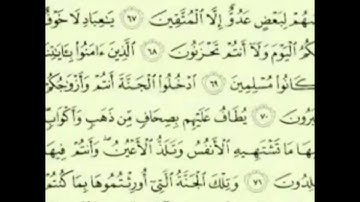 ضُهُمْ لِبَعْضٍ عَدُوٌّ إِلَّا ٱلْمُتَّقِينَ ٦٧ يَٰعِبَادِ لَا خَوْفٌ
كُمُ ٱلْيَوْمَ وَلَآ أَنتُمْ تَحْزَنُونَ ٦٨ ٱلَّذِينَ ءَامَنُوا۟ بِـَٔايَٰتِنَا
كَانُوا۟ مُسْلِمِينَ ٦٩ ٱدْخُلُوا۟ ٱلْجَنَّةَ أَنتُمْ وَأَزْوَٰجُكُمْ
بَرُونَ ٧٠ يُطَافُ عَلَيْهِم بِصِحَافٍ مِّن ذَهَبٍ وَأَكْوَابٍ
هَا مَا تَشْتَهِيهِ ٱلْأَنفُسُ وَتَلَذُّ ٱلْأَعْيُنُ ۖ وَأَنتُمْ فِيهَا
لِدُونَ ٧١ وَتِلْكَ ٱلْجَنَّةُ ٱلَّتِىٓ أُورِثْتُمُوهَا بِمَا كُنتُمْ